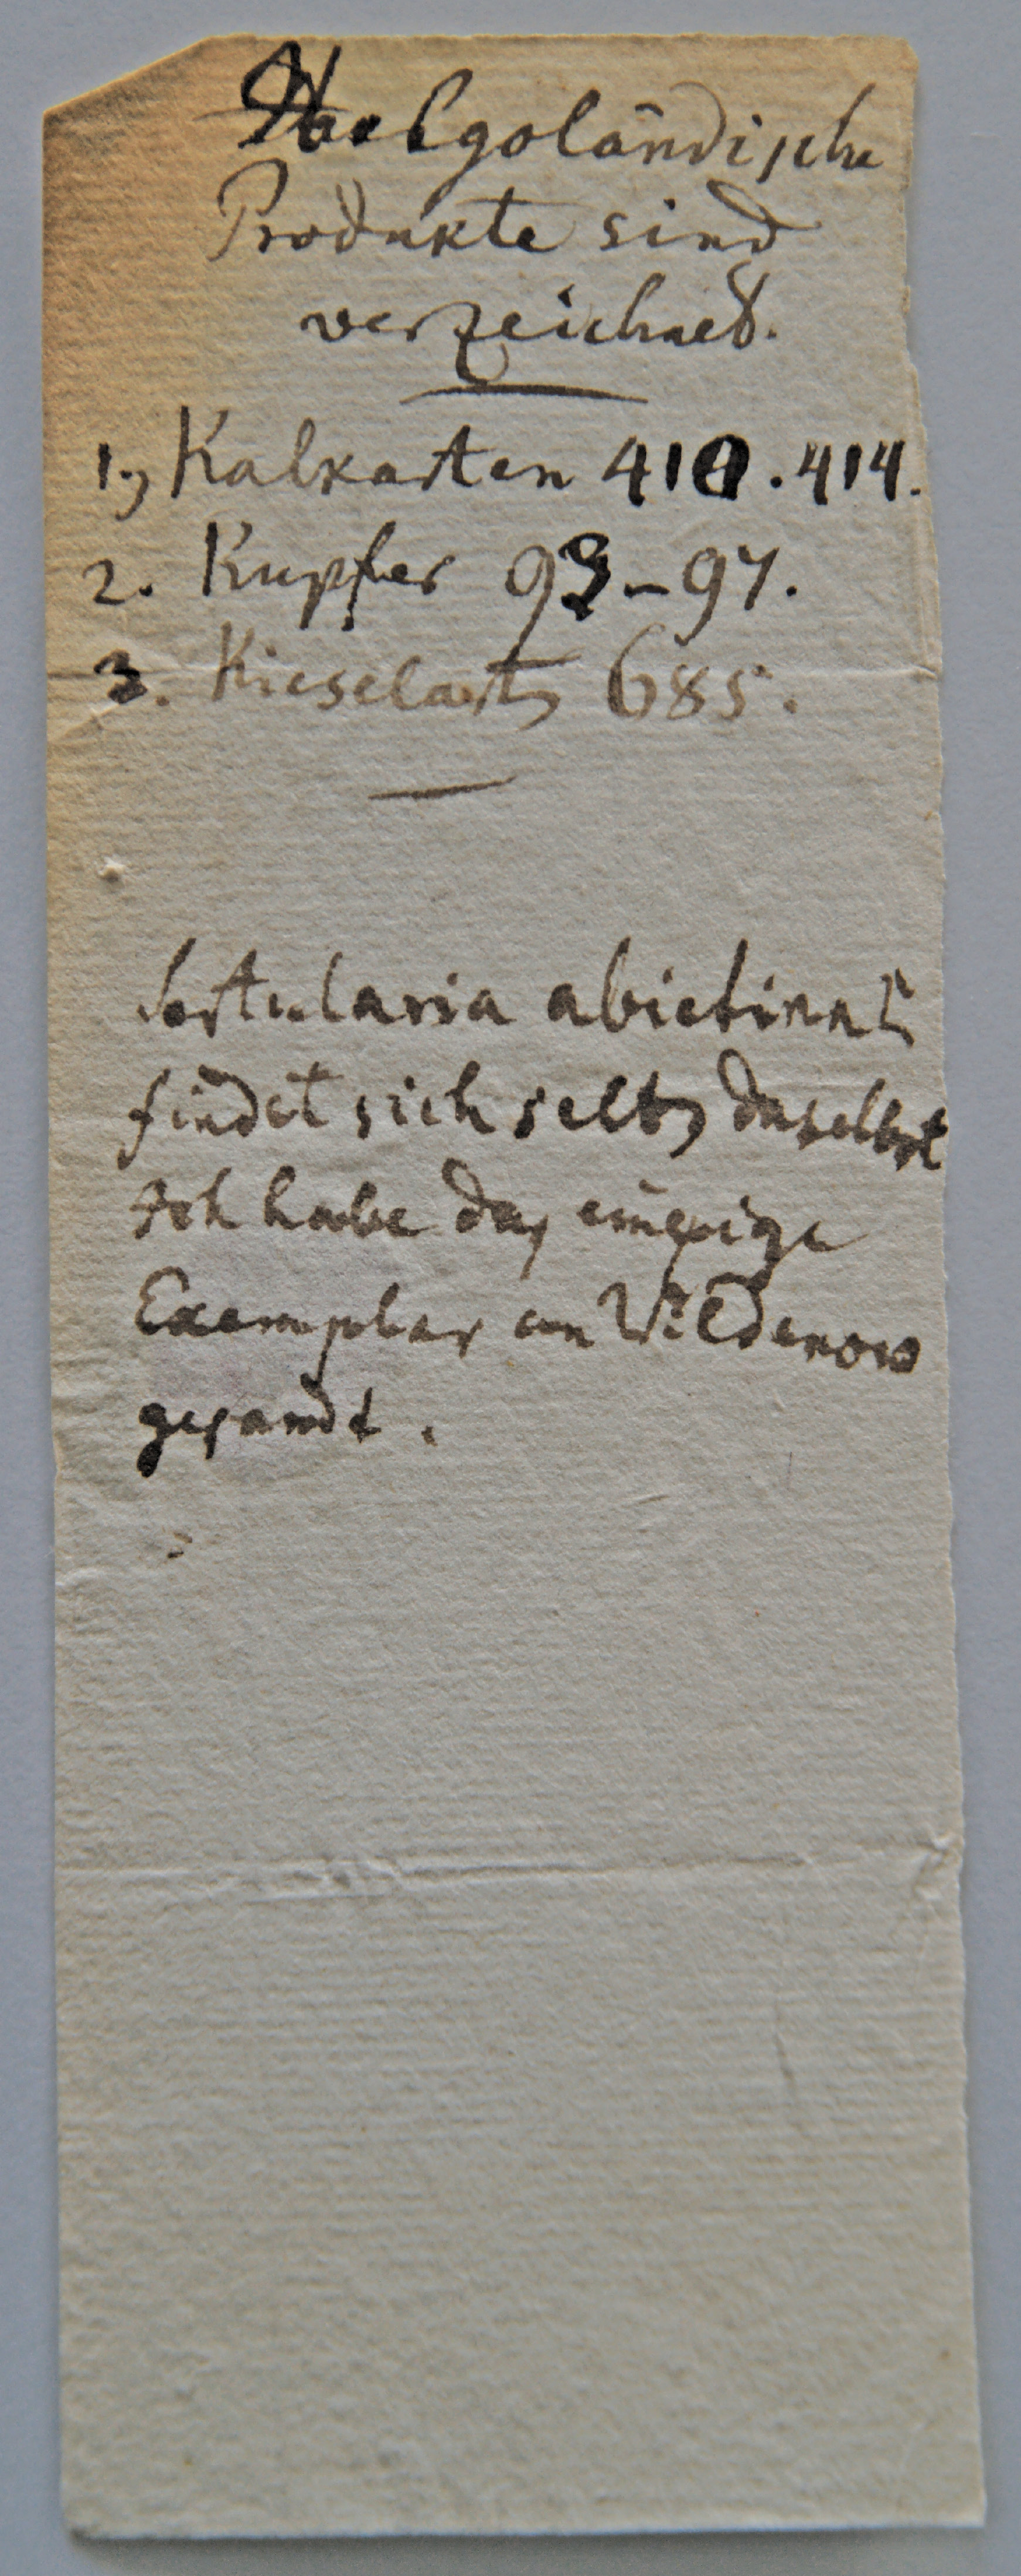 Helgoländische
Produkte sind
verzeichned.
1., Kalkarten 410. 414.
2. Kupfer 93-97.
3. Kieselart, 685.
Sertularia abietina L
findet sich selt, daselbst
Ich habe das einzige
Exemplar an Wildenow
gesandt.